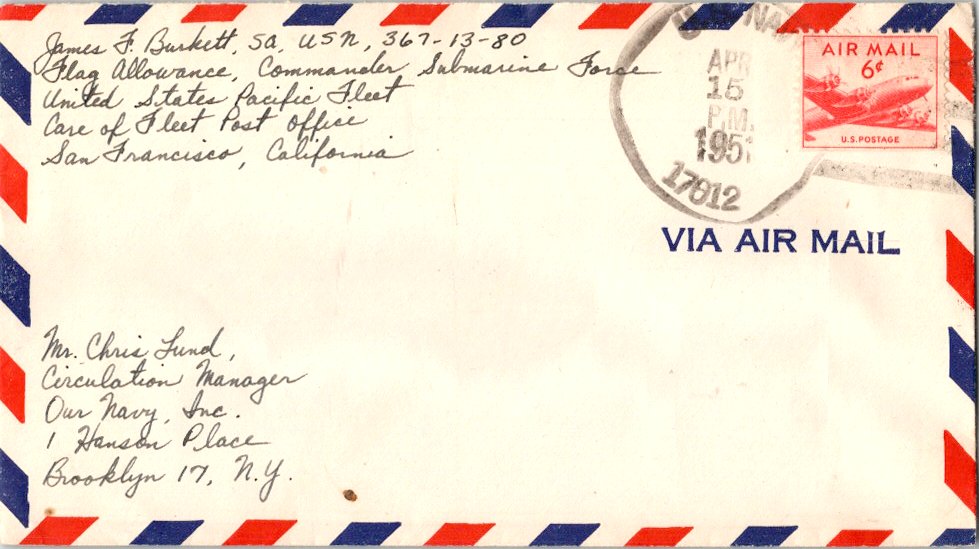 James F. Burkett, SA, USN, 367-13-80
Flag Allowance, Commander Submarine Force
United States Pacific Fleet
Care of Fleet Post Office
San Francisco, California
U.S. NAVY
APR
15
P.M.
1951
17012
AIR MAIL
6¢
U.S. POSTAGE
VIA AIR MAIL
Mr. Chris Lund,
Circulation Manager
Our Navy, Inc.
1 Hanson Place
Brooklyn 17, N.Y.